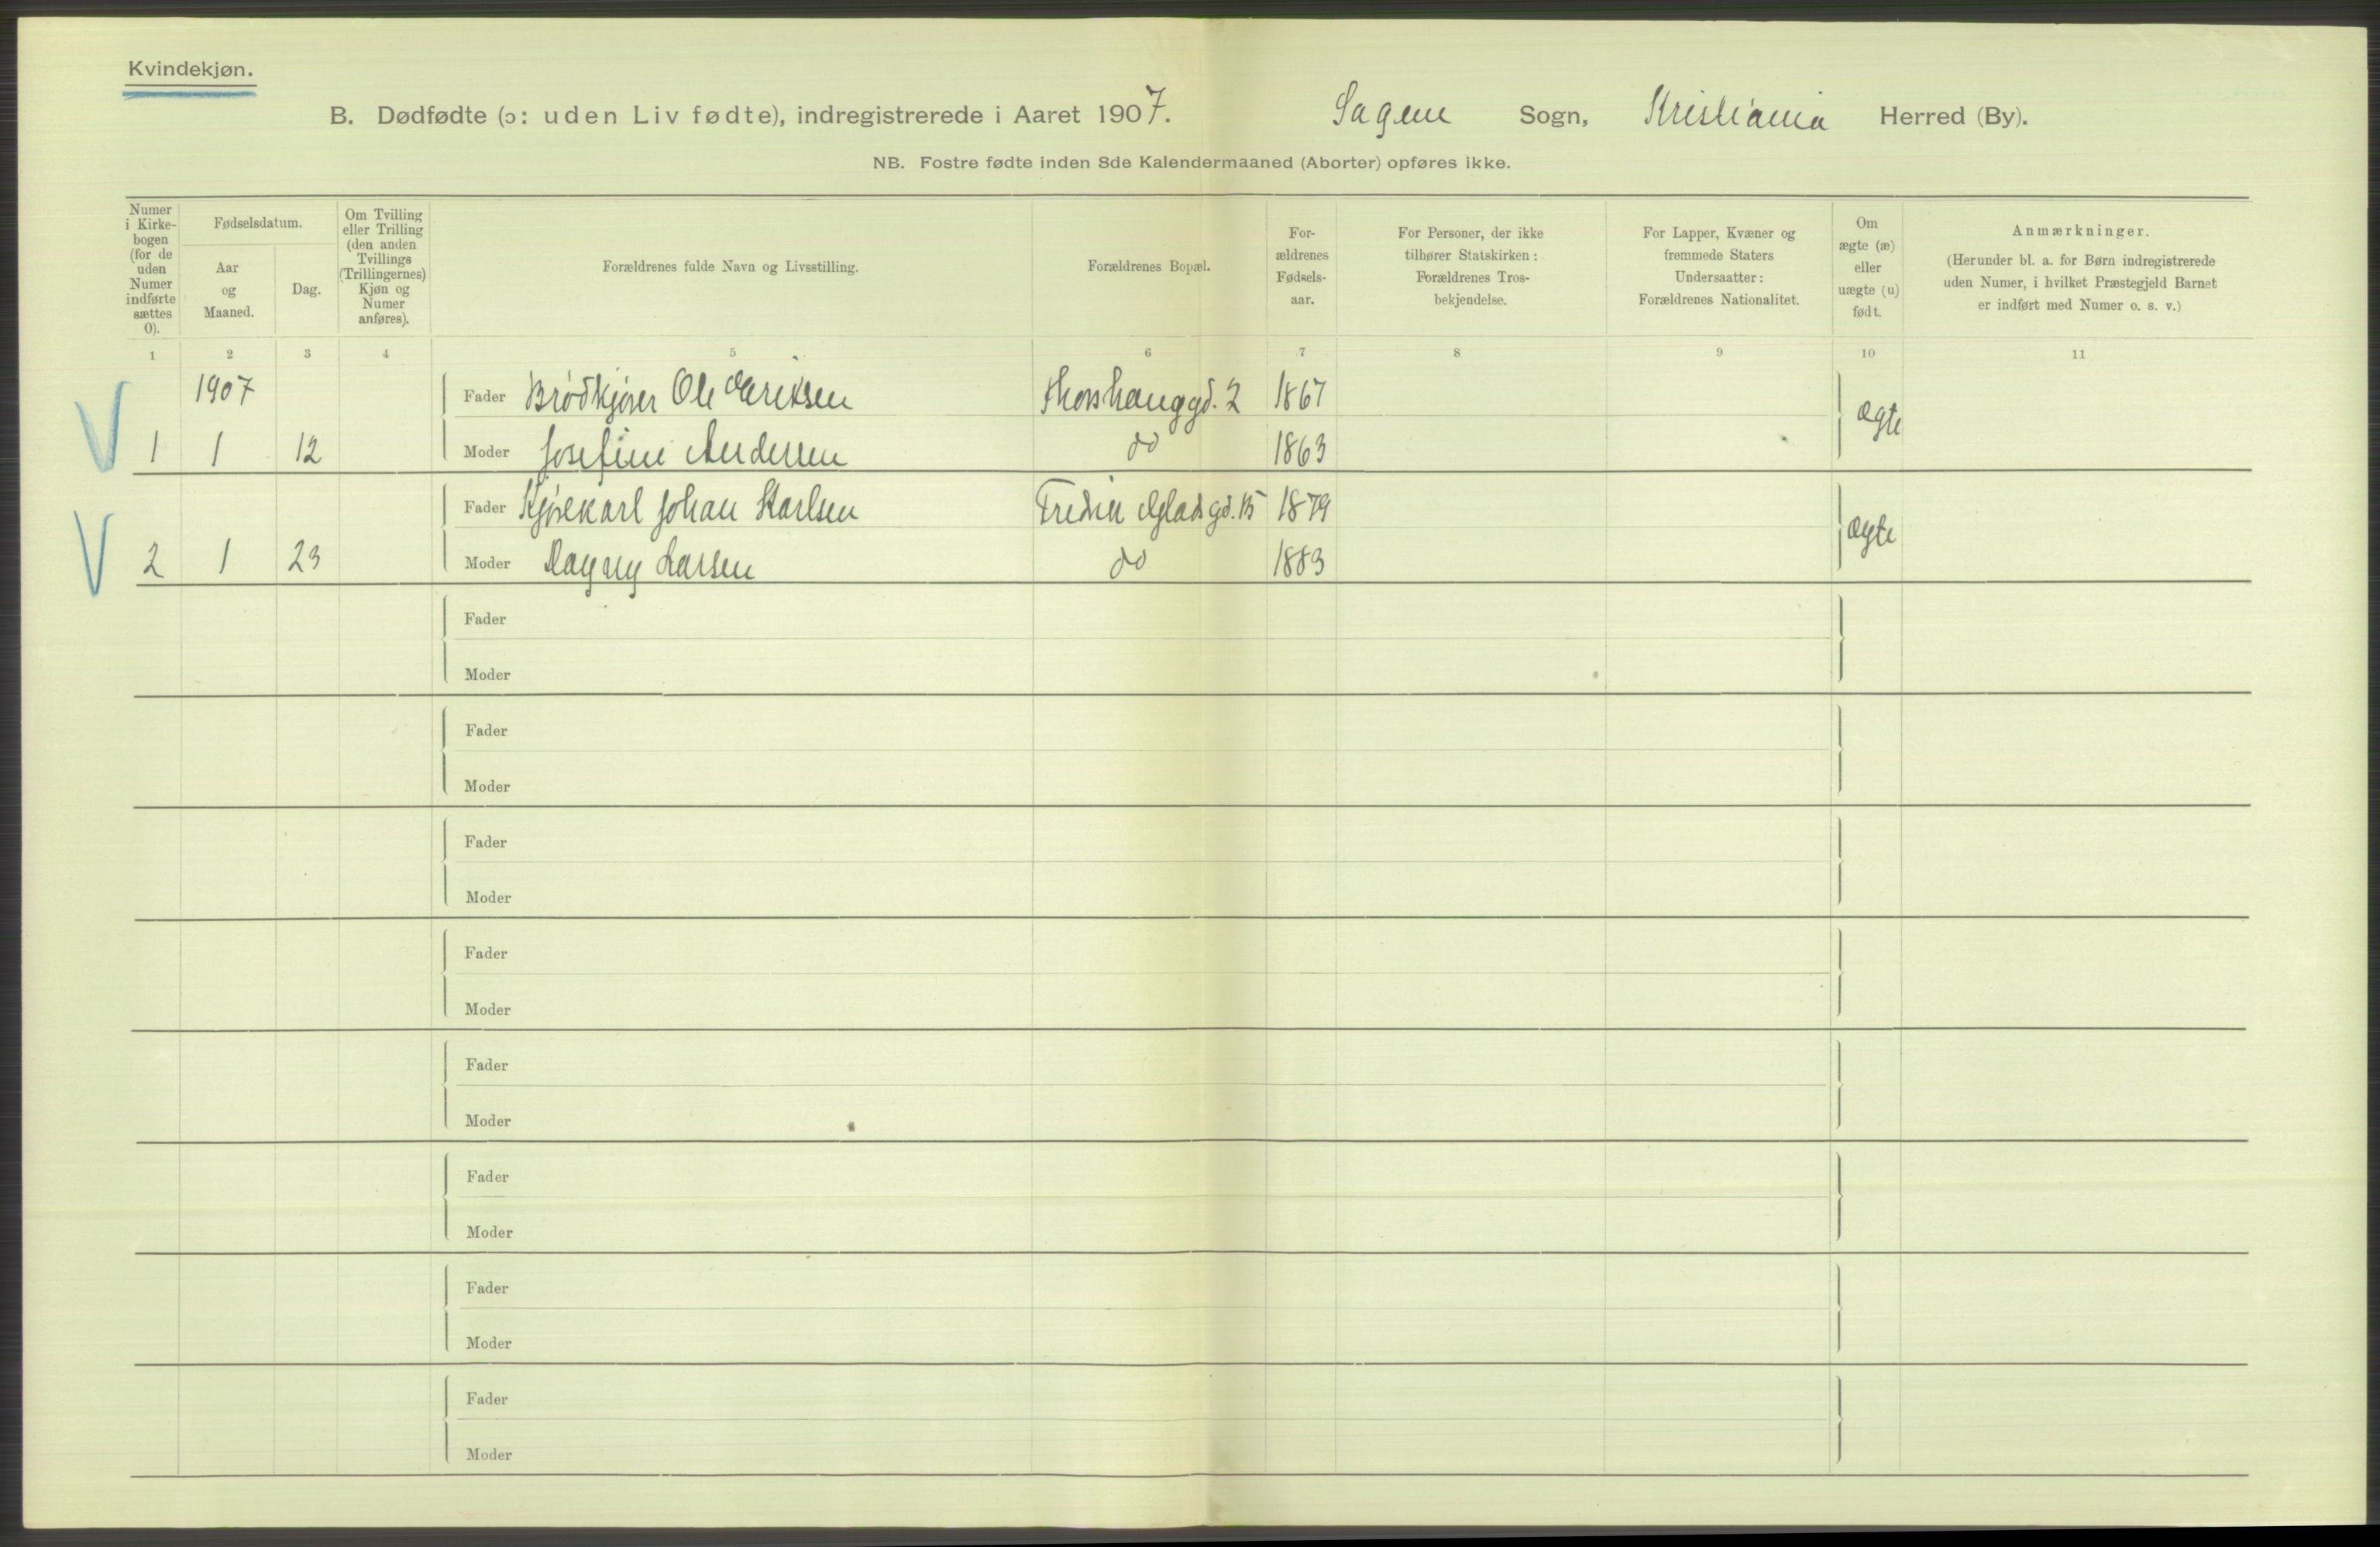 Kvindekjøn.
B. Dødfødte (ɔ: uden Liv fødte), indregistrerede i Aaret 1907. Sagene Sogn, Kristiania Herred (By).
NB. Fostre fødte inden 8de Kalendermaaned (Aborter) opføres ikke.
Numer i Kirkebogen (for de uden Numer indførte sættes 0).
Fødselsdatum.
Aar og Maaned.
Dag.
Om Tvilling eller Trilling (den anden Tvillings (Trillingernes) Kjøn og Numer anføres).
Forældrenes fulde Navn og Livsstilling.
Forældrenes Bopæl.
Forældrenes Fødselsaar.
For Personer, der ikke tilhører Statskirken: Forældrenes Trosbekjendelse.
For Lapper, Kvæner og fremmede Staters Undersaatter: Forældrenes Nationalitet.
Om ægte (æ) eller uægte (u) født.
Anmærkninger.
(Herunder bl. a. for Børn indregistrerede uden Numer, i hvilket Præstegjeld Barnet er indført med Numer o. s. v.)
1 2 3 4 5 6 7 8 9 10 11
1907 Fader Brødkjører Ole Eriksen Thorshauggd. 2 1867 ægte
V 1 1 12 Moder Josefine Andersen do 1863
Fader Kjørekarl Johan Karlsen Fredrik Gladsgd. 15 1879 ægte
V 2 1 23 Moder Dagny Larsen do 1883
Fader
Moder
Fader
Moder
Fader
Moder
Fader
Moder
Fader
Moder
Fader
Moder
Fader
Moder
Fader
Moder